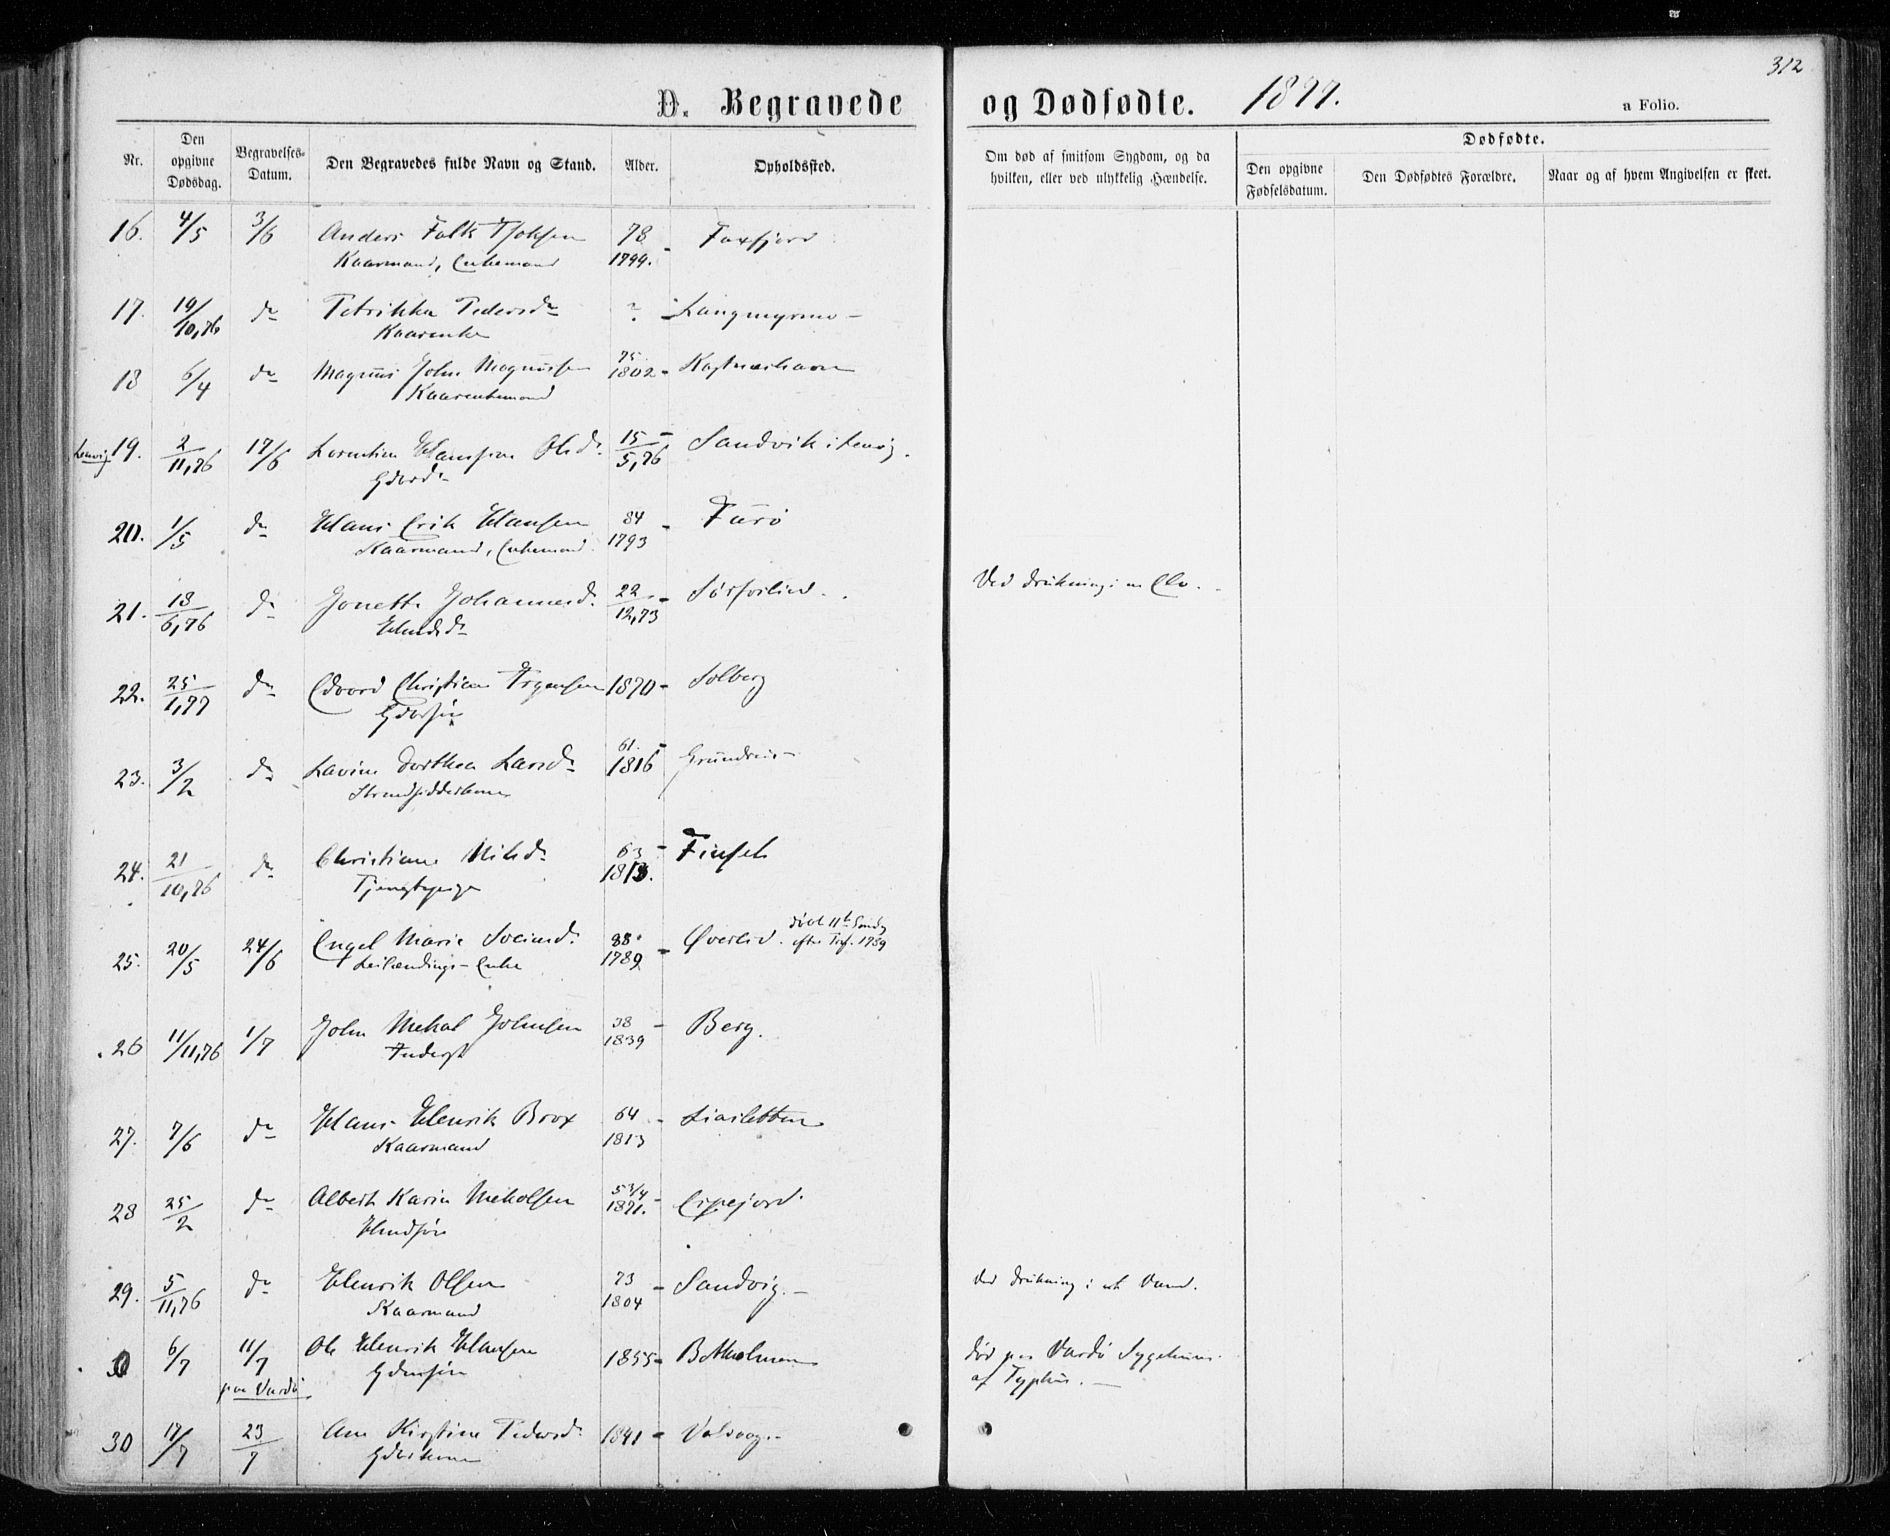 312
D. Begravede og Dødfødte. 1877. a Folio.
Nr. Den opgivne Dødsdag. Begravelses-Datum. Den Begravedes fulde Navn og Stand. Alder. Opholdssted. Om død af smitsom Sygdom, og da hvilken, eller ved ulykkelig Hændelse. Dødfødte. Den opgivne Fødselsdatum. Den Dødfødtes Forældre. Naar og af hvem Angivelsen er skeet.
16. 4/5 3/6 Anders Falk 78 Faxfjord
Kaarmand, Enkemand 1799.
17. 19/10,76 do Petrikka Pedersdr ? Langmyrmo
Kaarenke
18 6/4 do Magnus John Magnussen 75
Kaarenkemand 1802
Lenvig 19. 2/11,76 17/6 Olsdr. 15/5,76 Sandvik i Lenvig.
Gdbrdr
20. 1/5 do Hans Erik Hansen 84 Furø
Kaarmand, Enkemand. 1793
21. 18/6,76 do Jonetta Johannesd. 22/12,73 Ved drukning i en Elv.
22. 25/1,77 do Edvard Christian 1870 Solberg
Gdbrsøn
23. 3/2 do Lavine Dorthea Larsdr 61. Grundreis
1816
24. 21/10,76 do Christiane Nilsdr 63 Finset
Tjenstepige 1813.
25. 20/5 24/6 Engel Marie 88 Øverlid. døbt 11te Sond.
Leilændings-Enke 1789 efter Tref. 1789
26 11/11,76 1/7 John Mekal Johnsen 38 Berg.
Inderst 1839
27. 7/6 do Hans Henrik Brox 64 Liasletten
Kaarmand 1813
28 25/2 do Albert Karin Mekalsen 5 3/4
Husmdsøn 1871.
29. 5/11,76 do Henrik Olsen 73 Sandvig. Ved drukning i et Vand.
Kaarmand 1804
30 6/7 11/7 Ole Henrik Hansen 1855 død paa Vardø Sygehuus
paa Vardø Gdbrsøn af Typhus.
30 17/7 23/7 Ane Kirstine Pedersd. 1841 Valvaag
Gdbrkone